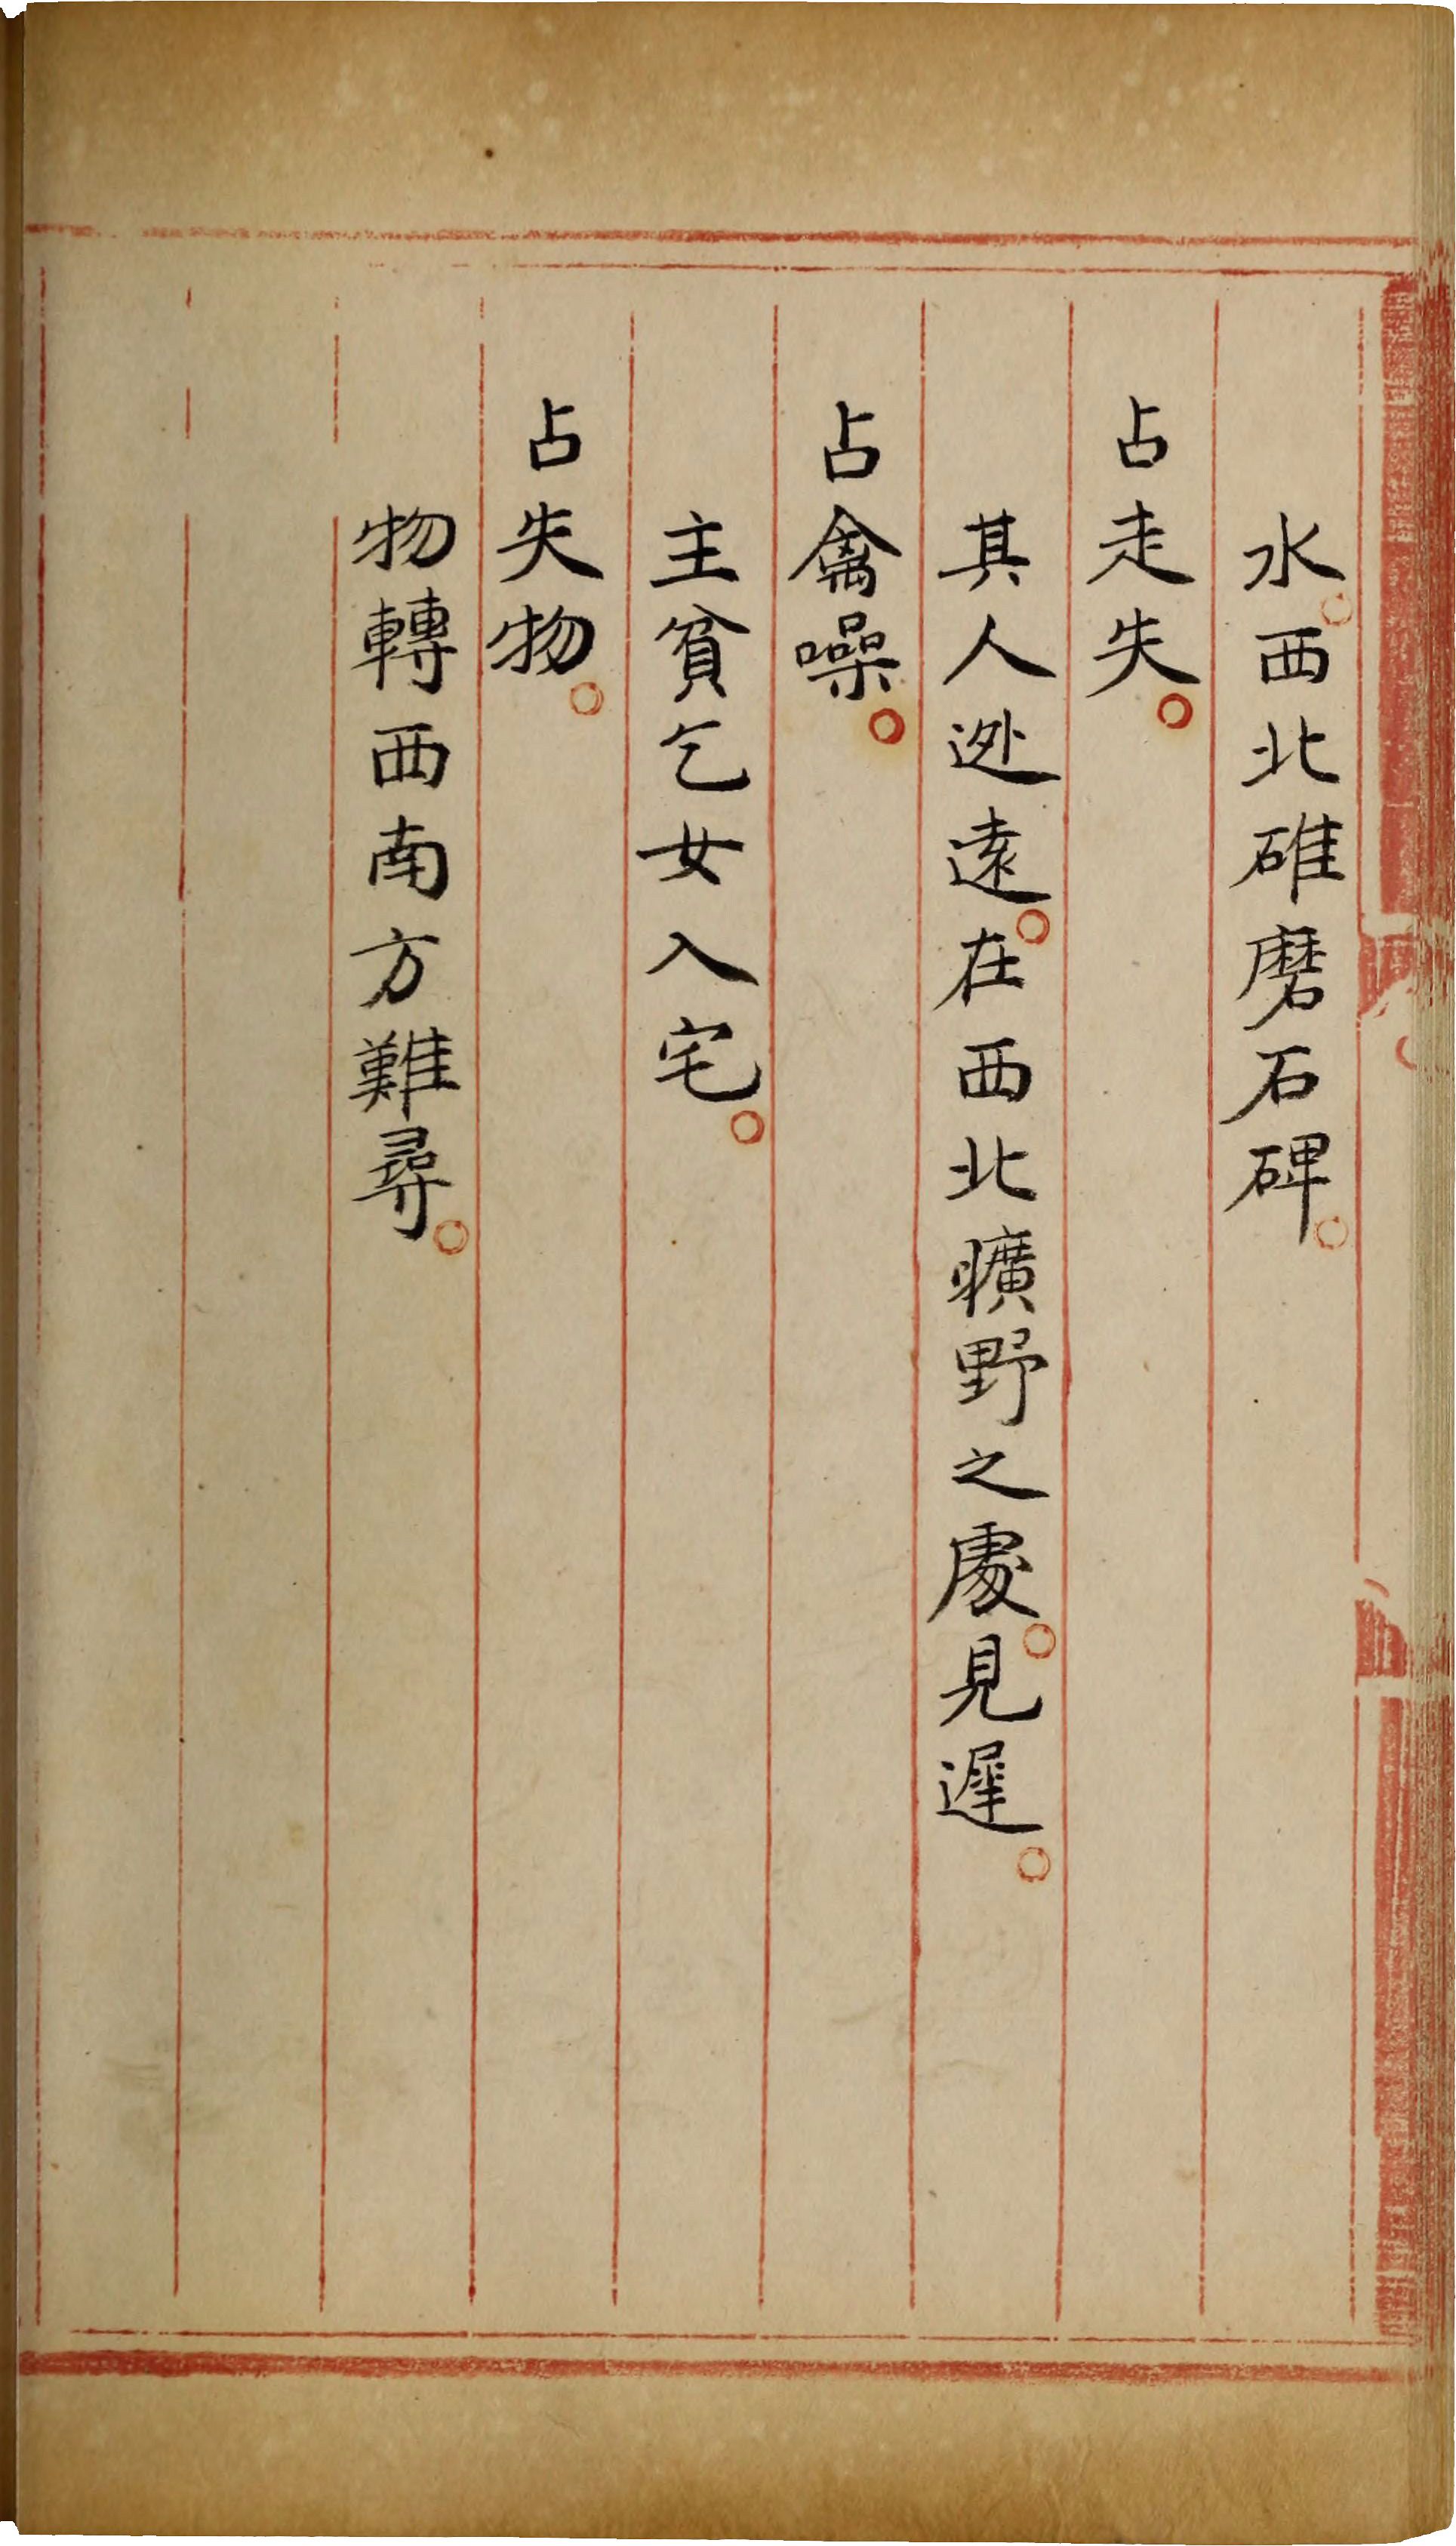 水。西北碓磨石碑。
占走失。
其人逃遠。在西北曠野之處。見遲。
占禽噪。
主貧乞女入宅。
占失物。
物轉西南方難尋。